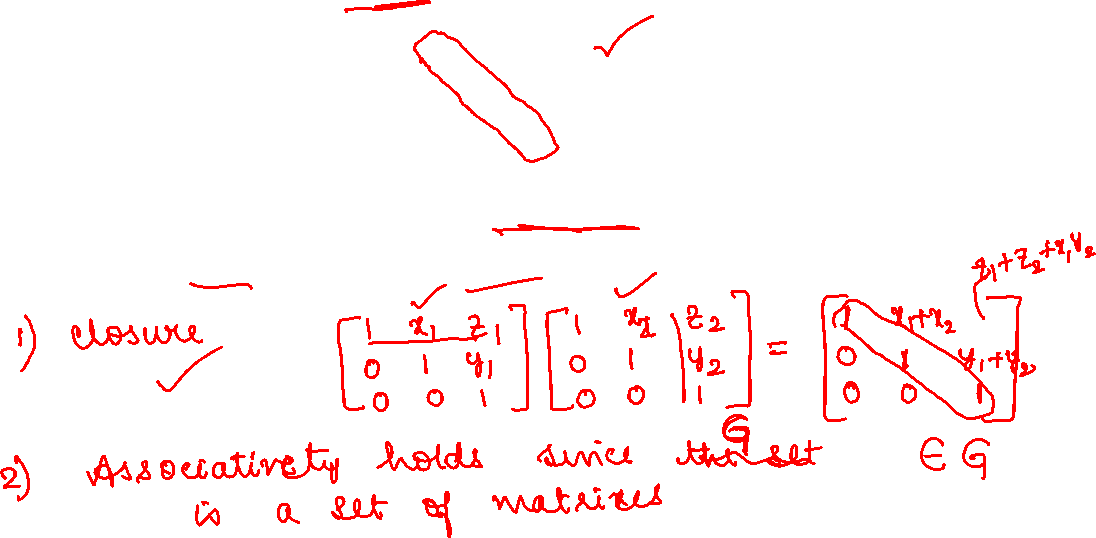 1) closure [1 x₁ z₁ 0 1 y₁ 0 0 1] [1 x₂ z₂ 0 1 y₂ 0 0 1] = [1 x₁+x₂ z₁+z₂+x₁y₂ 0 1 y₁+y₂ 0 0 1] ∈ G
2) Associativity holds since the set G
is a set of matrixes